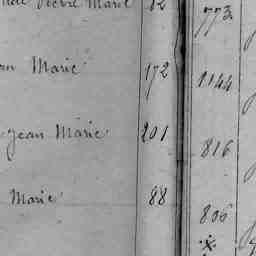 Pierre Marie 82 773
Marie 172 1144
Jean Marie 201 816
Marie 88 806